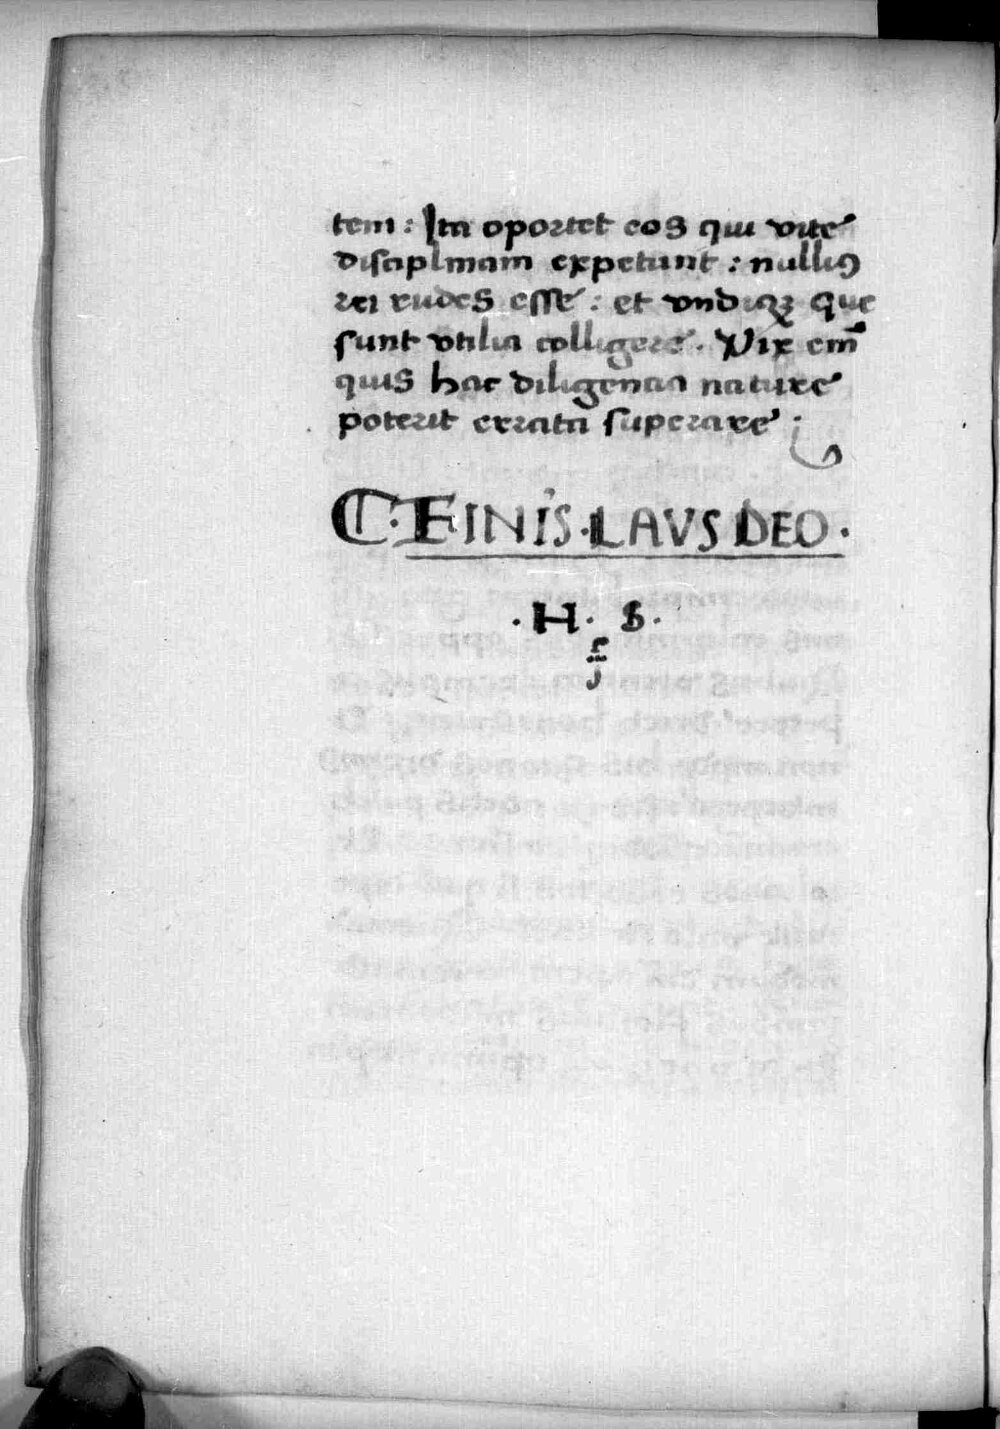 tem: Ita oportet eos qui vite
disciplinam expetunt: nullius
rei rudes esse: et vndiqꝫ que
sunt vtilia colligere. Vix em̄
quis hac diligentia nature
poterit errata superare:
FINIS · LAVS DEO ·
· H · S ·